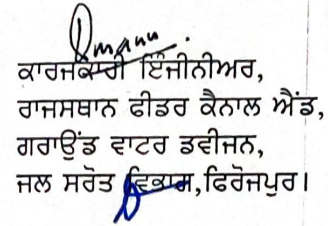 ਕਾਰਜਕਾਰੀ ਇੰਜੀਨੀਅਰ,
ਰਾਜਸਥਾਨ ਫੀਡਰ ਕੈਨਾਲ ਐਂਡ,
ਗਰਾਊਂਡ ਵਾਟਰ ਡਵੀਜਨ,
ਜਲ ਸਰੋਤ ਵਿਕਾਸ, ਫਿਰੋਜਪੁਰ।